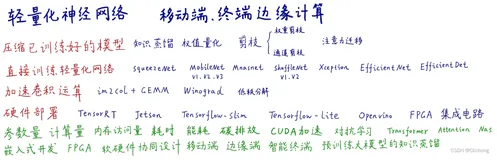 轻量化神经网络 移动端、终端边缘计算
压缩已训练好的模型 知识蒸馏 权值量化 剪枝 权重剪枝 通道剪枝 注意力迁移
直接训练轻量化网络 squeezeNet MobileNet V1.V2.V3 Mnasnet ShuffleNet V1.V2 Xception EfficientNet EfficientDet
加速卷积运算 im2col + GEMM Winograd 低秩分解
硬件部署 TensorRT Jetson Tensorflow-slim Tensorflow-lite Openvino FPGA 集成电路
参数量 计算量 内存访问量 耗时 能耗 碳排放 CUDA加速 对抗学习 Transformer Attention Nas
嵌入式开发 FPGA 软硬件协同设计 移动端 边缘端 智能终端 预训练大模型的知识蒸馏